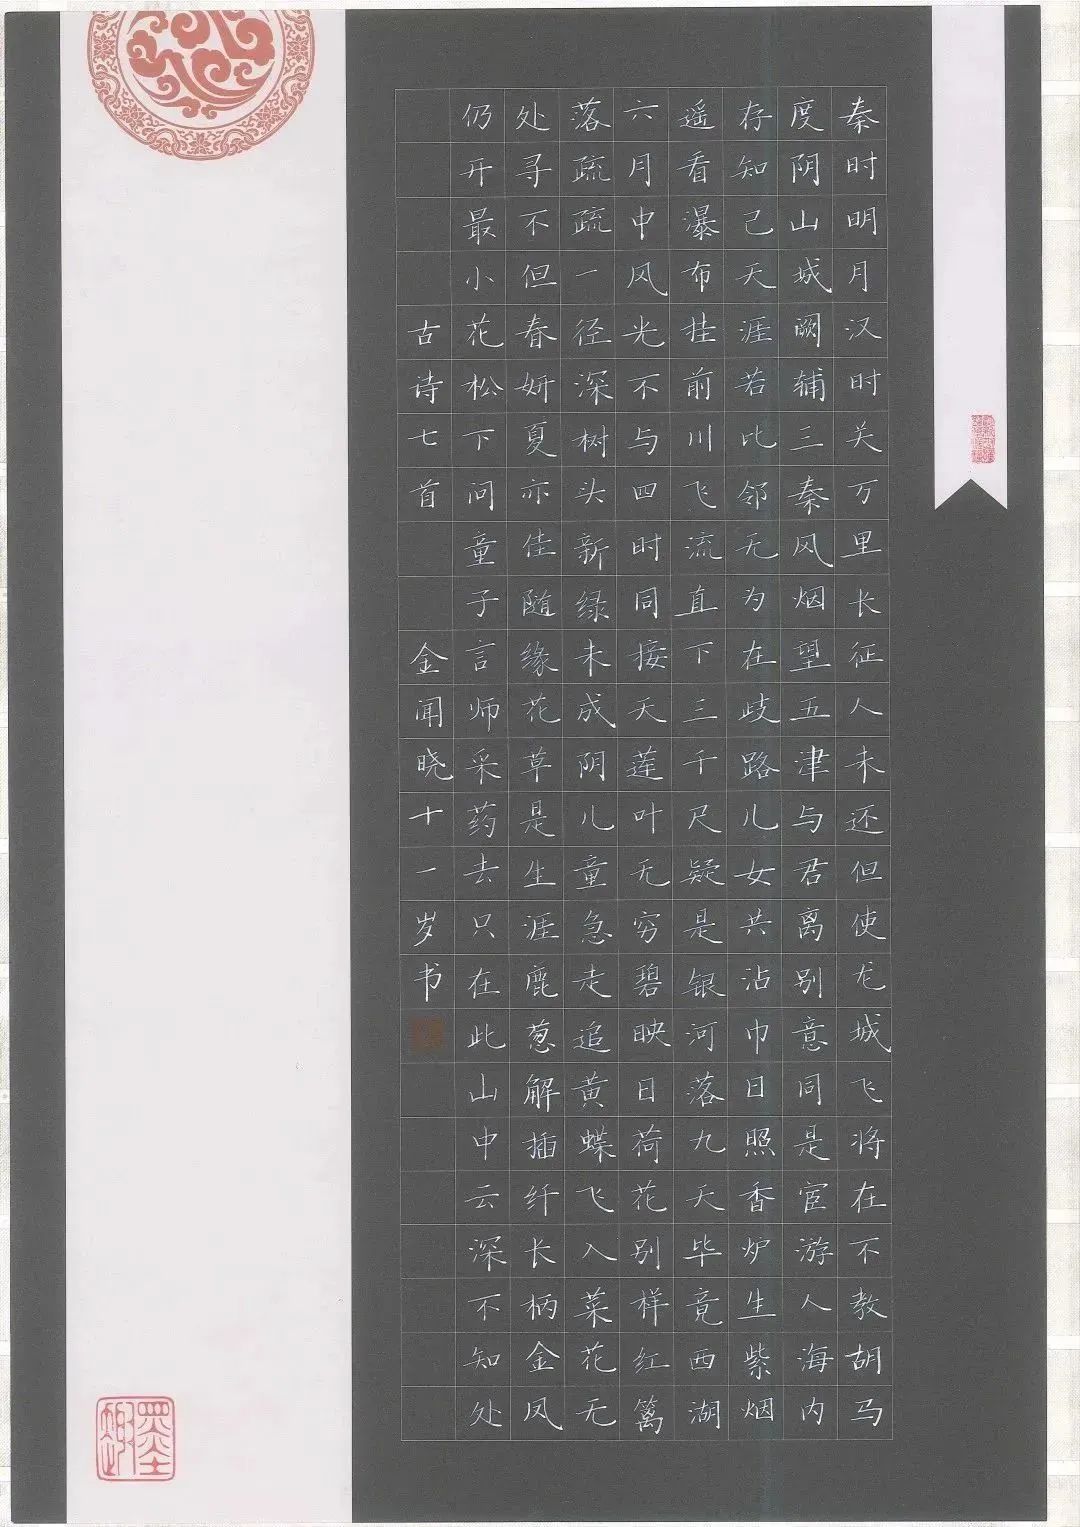 秦时明月汉时关万里长征人未还但使龙城飞将在不教胡马
度阴山城阙辅三秦风烟望五津与君离别意同是宦游人海内
存知己天涯若比邻无为在歧路儿女共沾巾日照香炉生紫烟
遥看瀑布挂前川飞流直下三千尺疑是银河落九天毕竟西湖
六月中风光不与四时同接天莲叶无穷碧映日荷花别样红篱
落疏疏一径深树头新绿未成阴儿童急走追黄蝶飞入菜花无
处寻不但春妍夏亦佳随缘花草是生涯鹿葱解插纤长柄金凤
仍开最小花松下问童子言师采药去只在此山中云深不知处
古诗七首 金闻晓十一岁书
墨趣